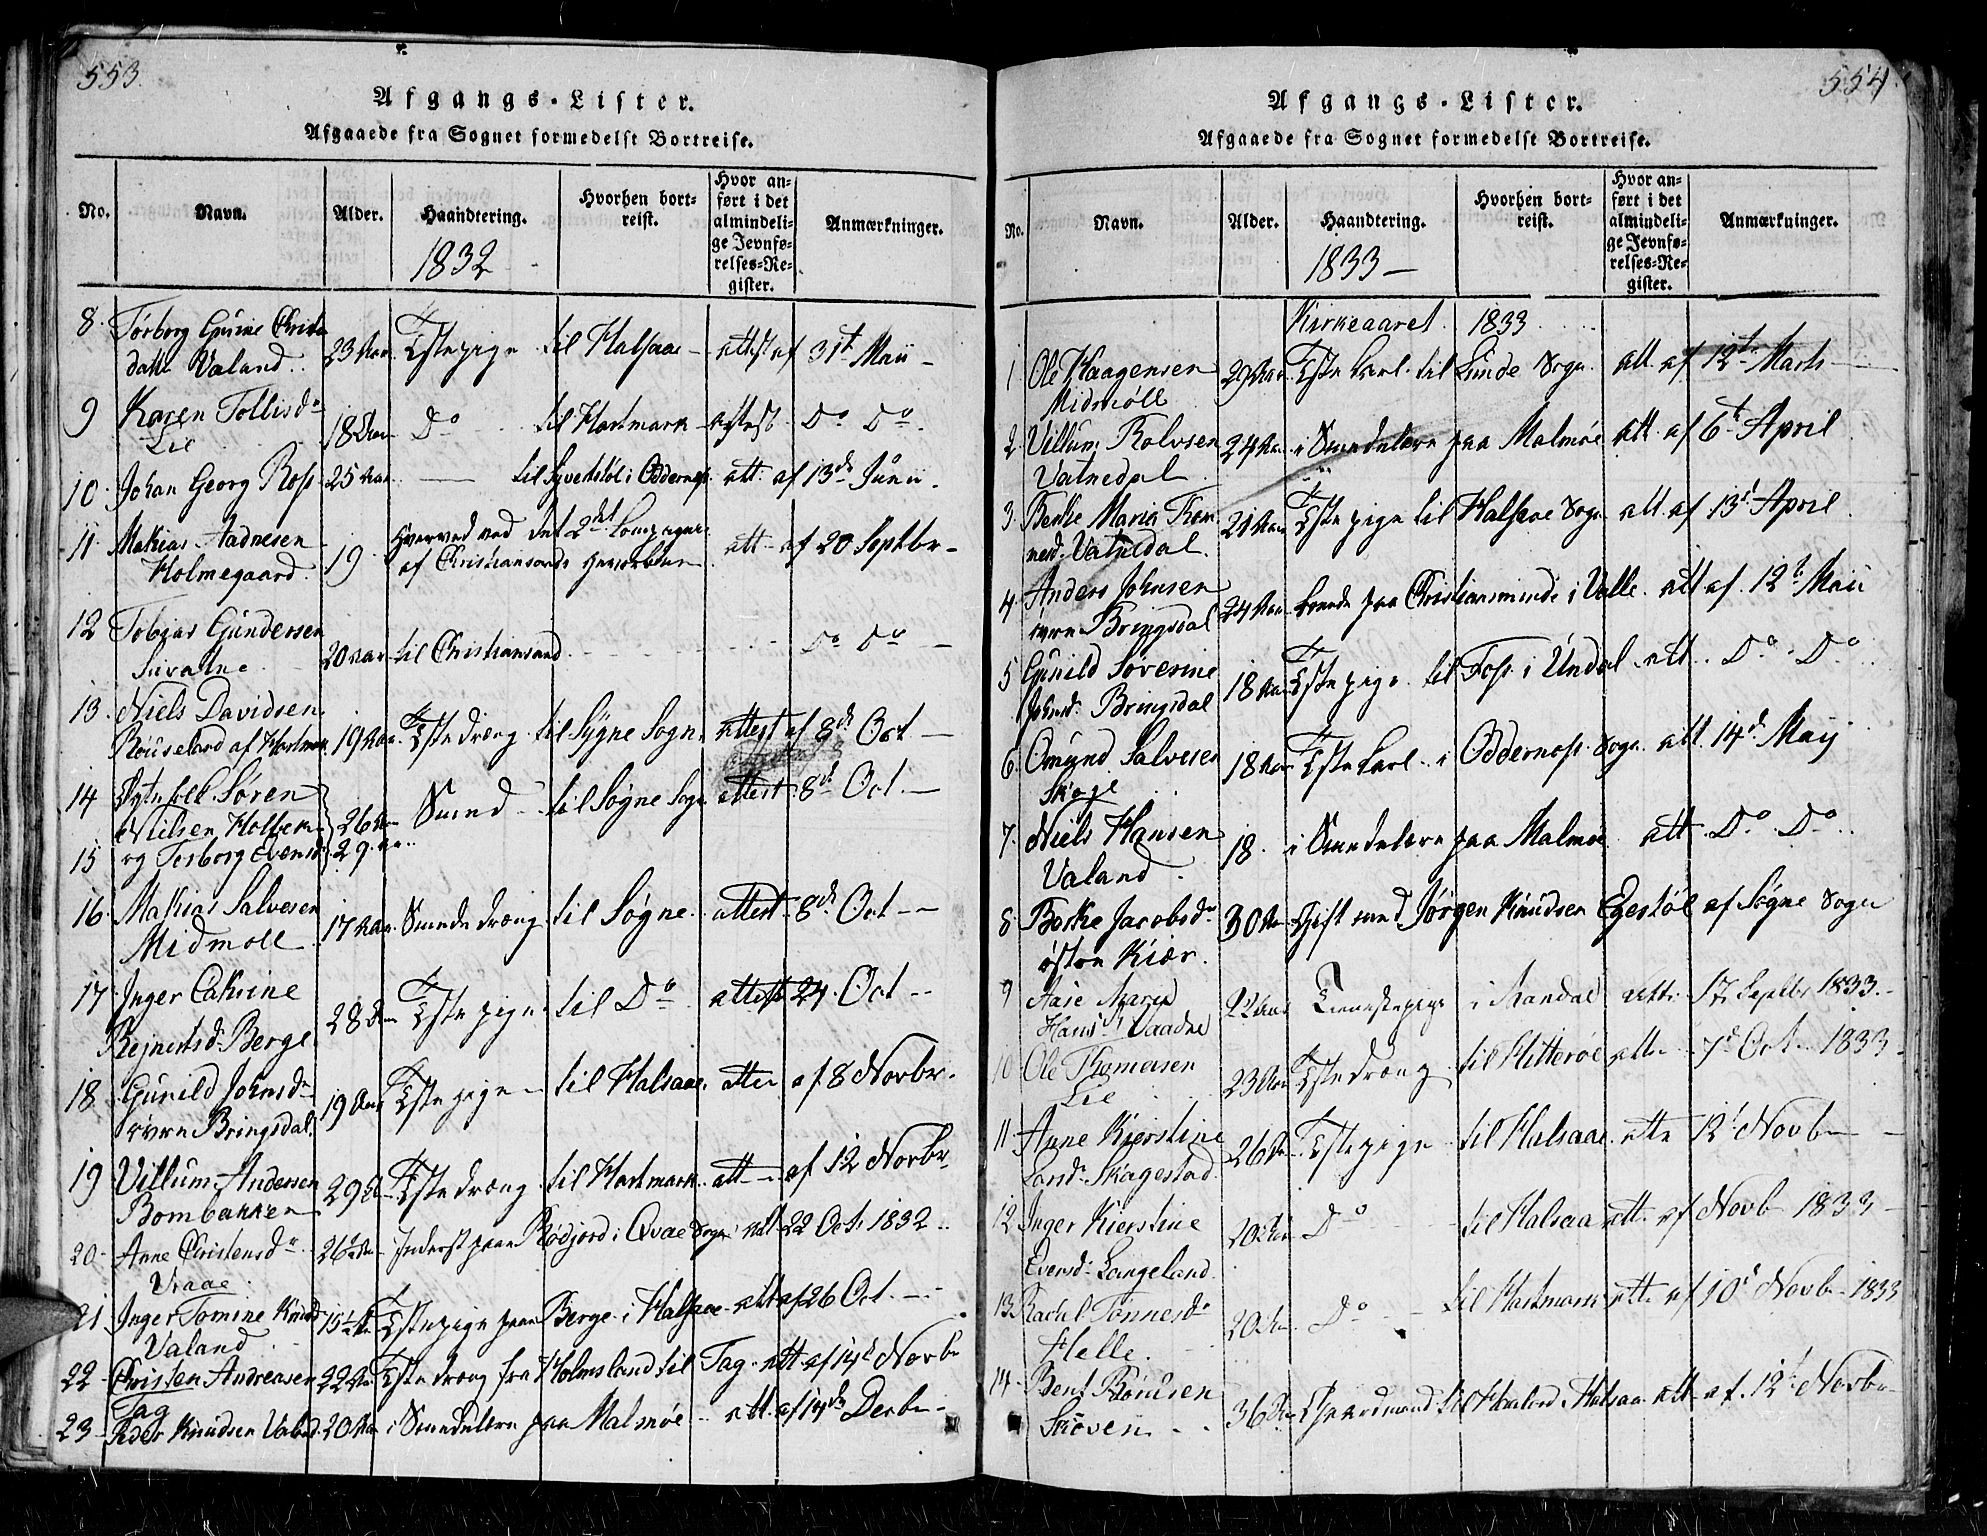 553.
Afgangs-Lister.
Afgaaede fra Sognet formedelst Bortreise.
No. Navn. Alder. Haandtering. Hvorhen bortreist. Hvor anført i det almindelige Jevnførelses-Register. Anmærkninger.
1832
8. Tørborg Gurine Christ
datt Valand. 23 Aar. Tstepige til Halsaa attest af 31t Maii
9 Karen Tollisd.
Lie 18 Aar Do til Hartmark attest Do Do
10. Johan Georg Ross 25 Aar til i Oddernes att. af 13de Junii.
11. Mathias Aadnesen
Holmegaard 19 Hverved ved det 2det Compagnie
af Christiansands att. af 20 Septbr
12 Tobias Gundersen
20 Aar til Christiansand Do Do
13. Niels Davidsen
af Hartmark 19 Aar. Tstedræng til Sygne Sogn attest af 8de Oct.
14 Søren
Nilsen 26 Aar Smed til Søgne Sogn attest 8de Oct.
15 og Torborg Evensd. 29 Aar.
16. Mathias Salvesen
Midmoll 17 Aar. Smededræng til Søgne. attest 8de Oct
17. Inger Cathrine
Rejnertsd. Berge. 28 Aar Tstepige til Do attest 24. Oct
18 Gunild Johnsd.
øvre Bringsdal. 19 Aar Tstepige til Halsaa. att af 8 Novbr.
19 Villum Andersen
Bombakken 29 Aar Tstedræng til Hartmark. att af 12 Novbr
20 Anne Christensd.
Vraae. 26 Aar Inderst paa Rødjord i Qvae Sogn att 22 Oct. 1832
21 Inger Tomine Knud
Valand 15½ Aar Tstepige paa Berge i Halsaae att af 26 Oct.
22 Christen Andreasen 22 Aar Tstedræng fra Holmsland til Tag att af 14d Novbr
Tag
23 Peder Knudsen Valand. 20 Aar i Smedelære paa Malmøe att. af 14de Decbr
554.
Afgangs-Lister.
Afgaaede fra Sognet formedelst Bortreise.
No. Navn. Alder. Haandtering. Hvorhen bortreist. Hvor anført i det almindelige Jevnførelses-Register. Anmærkninger.
1833
Kirkeaaret 1833
1 Ole Haagensen
Midmøll 29 Aar Tstekarl til Lunde Sogn. att. af 12te Marts
2. Villum Rolvsen
Vatnedal 24 Aar i Smedelære paa Malmøe att. af 6te April
3. Berthe Maria Tom
mesd. Vatnedal. 21 Aar Tstepige til Halsaae Sogn att. af 13d April
4. Anders Johnsen
øvre Bringsdal 24 Aar boende paa Christiansminde i Valle. att af. 12t Maii
5 Gunild Soverine
Johnsd. Bringsdal 18 Aar Tstepige til Foss i Undal att. Do Do
6. Omund Salvesen
Skoje 18 Aar Tstekarl i Oddernoss Sogn att. 14d Maij
7. Niels Hansen
Valand. 18. i Smedelære paa Malmøe att. Do Do
8 Berthe Jacobsd.
østre Kiær. 30 Aar Gift med Jørgen Knudsen Egestøl af Søgne Sogn
9 Aase Maren
Hansd. Vaadne 22 Aar Tienestepige i Mandal att. 17 Septbr 1833.
10 Ole Tomesen
Lie 23 Aar Tstedræng til Hitterøe att. 7d Oct. 1833
11 Anne Kierstine
Larsd. Skagestad 26 Aar Tstepige til Halsaae att. 12t Novbr
12. Inger Kierstine
Evensd. Langeland. 20 Aar Do til Halsaa att. af Novb 1833
13. Rachel Tonnesd.
Helle. 20 Aar Do til Hartmark att. af 10d Novbr 1833
14 Bent Bentsen
Skoven 36 Aar Gaardmand til Haaland Halsaa att. af. 12t Novbr